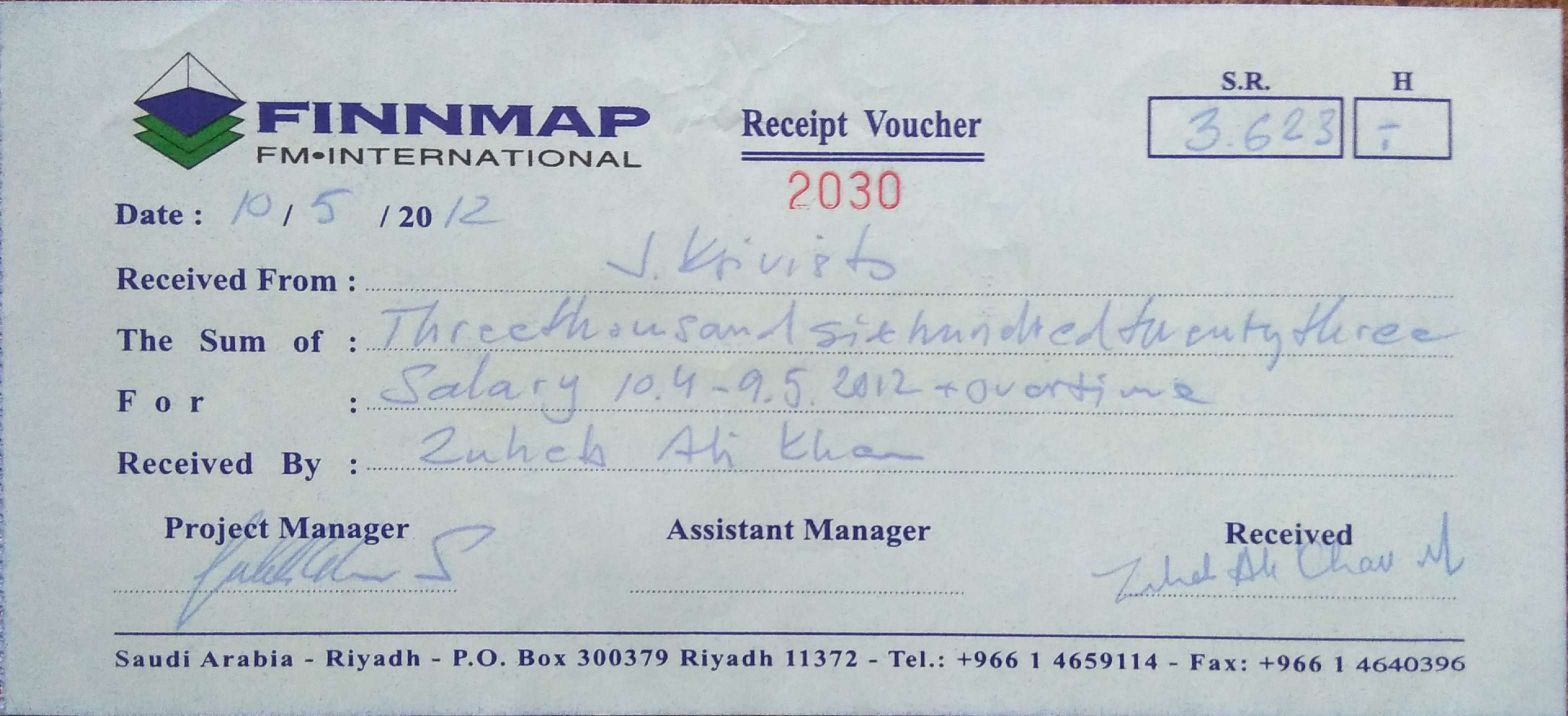 FINNMAP
FM•INTERNATIONAL
Receipt Voucher
2030
S.R. H
3.623 -
Date : 10 / 5 / 20 12
Received From : J. Koivisto
The Sum of : Three thousand six hundred twenty three
For : Salary 10.4 - 9.5. 2012 + overtime
Received By : Zuheb Ali Khan
Project Manager Assistant Manager Received
Zuheb Ali
Saudi Arabia - Riyadh - P.O. Box 300379 Riyadh 11372 - Tel.: +966 1 4659114 - Fax: +966 1 4640396